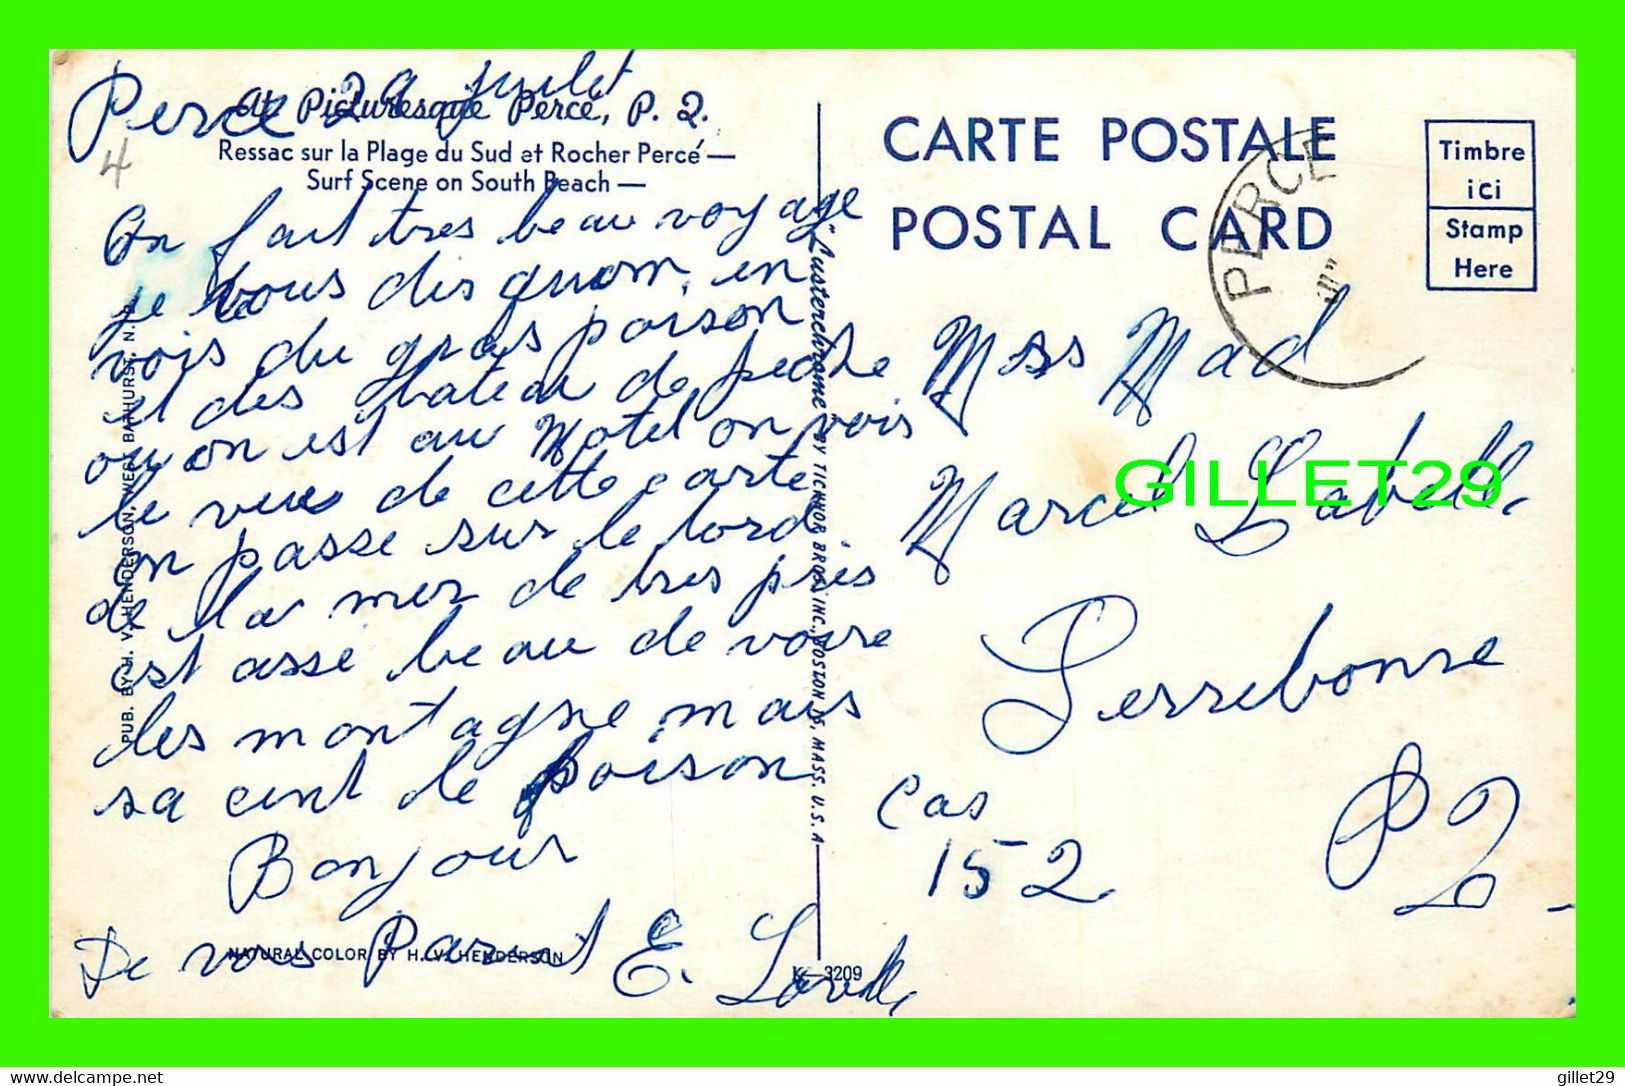 Perce 29 juilet
At Picturesque Percé, P. Q.
Ressac sur la Plage du Sud et Rocher Percé —
Surf Scene on South Beach —
4
On fait tres beau voyage
je vous dis quom en
vois du gros poison
et des bateau de peche
ou on est au Motel on vois
le vue de cette carte
on passe sur le bord
de la mer de tres près
est asse beau de voire
les montagne mais
sa cent le poison
Bonjour
De vos Parent E.
NATURAL COLOR BY H. V. HENDERSON
PUB. BY H. V. HENDERSON, WEST BATHURST, N.
"Lusterchrome" BY TICHNOR BROS. INC., BOSTON 15, MASS. U. S. A.
K-3209
CARTE POSTALE
POSTAL CARD
PERCE
Timbre
ici
Stamp
Here
Mss Mad
Marcel Labelle
Terrebonne
Cas
152
P Q
GILLET29
gillet29